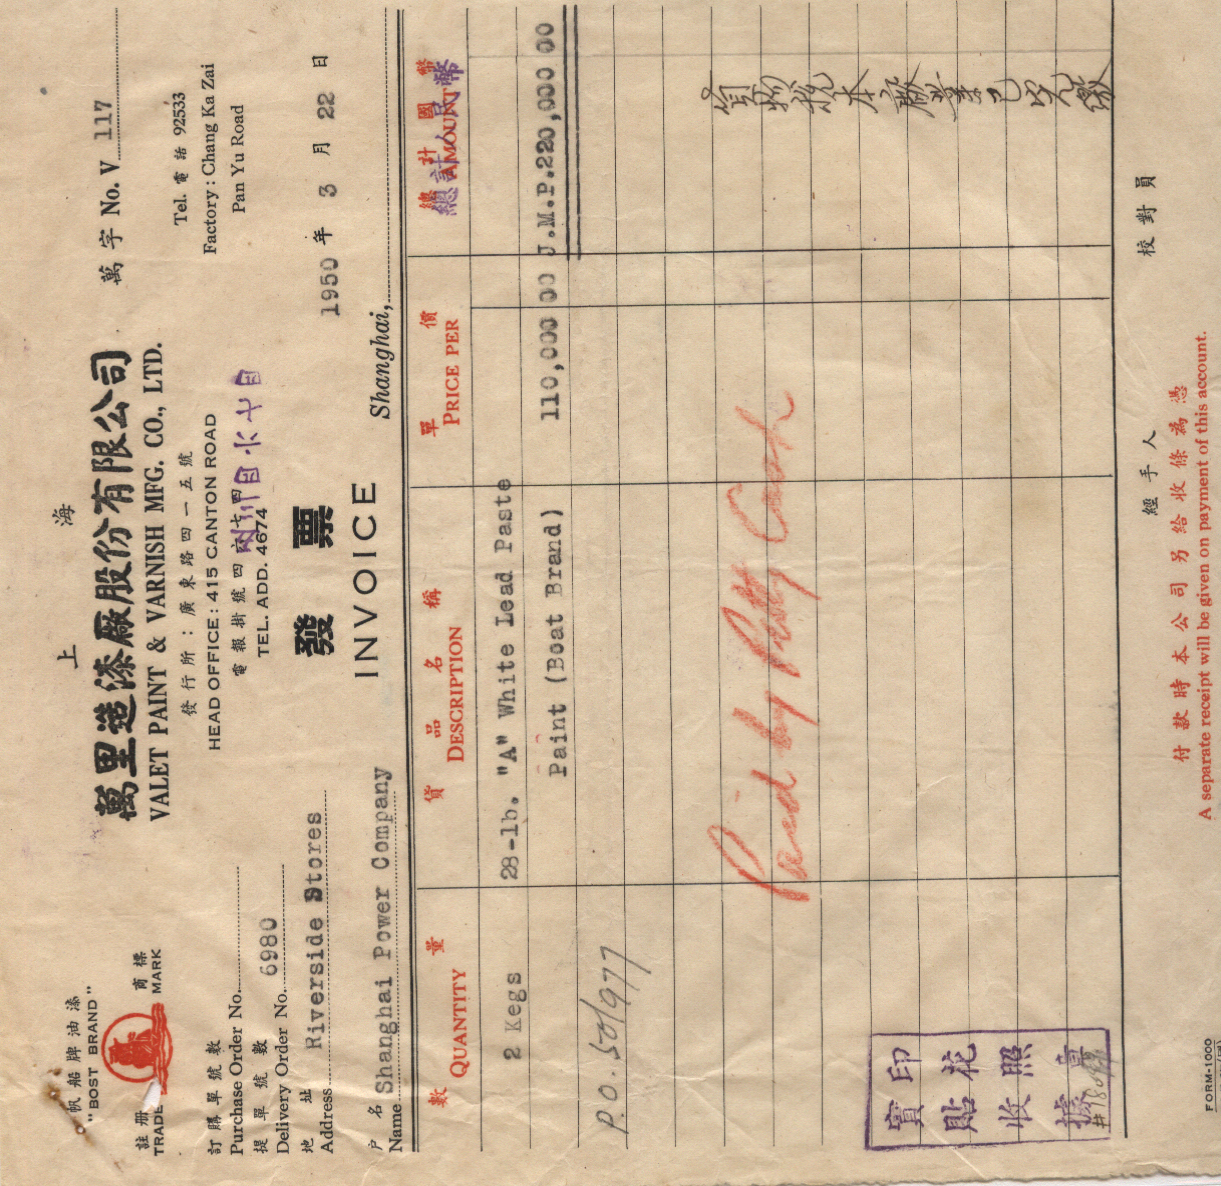 上海
萬里造漆廠股份有限公司
VALET PAINT & VARNISH MFG. CO., LTD.
發行所：廣東路四一五號
HEAD OFFICE: 415 CANTON ROAD
電報掛號四六七四
TEL. ADD. 4674
發票
INVOICE
帆船牌油漆
"BOST BRAND"
註冊 商標
TRADE MARK
萬字 No. V 117
Tel. 電話 92533
Factory: Chang Ka Zai
Pan Yu Road
訂購單號數
Purchase Order No.
提單號數
Delivery Order No. 6980
地址
Address Riverside Stores
戶名
Name Shanghai Power Company
1950年 3月 22日
Shanghai,
數量 貨品名稱 單價 總計國幣
QUANTITY DESCRIPTION PRICE PER AMOUNT
總計人民幣
2 Kegs 28-lb. "A" White Lead Paste
Paint (Boat Brand) 110,000 00 J.M.P.220,000 00
P.O. 50/977
Paid by Petty Cash
貨物稅本廠業已完繳
印花照章
實貼收據
經手人 校對員
付款時本公司另給收條為憑
A separate receipt will be given on payment of this account.
FORM-1000